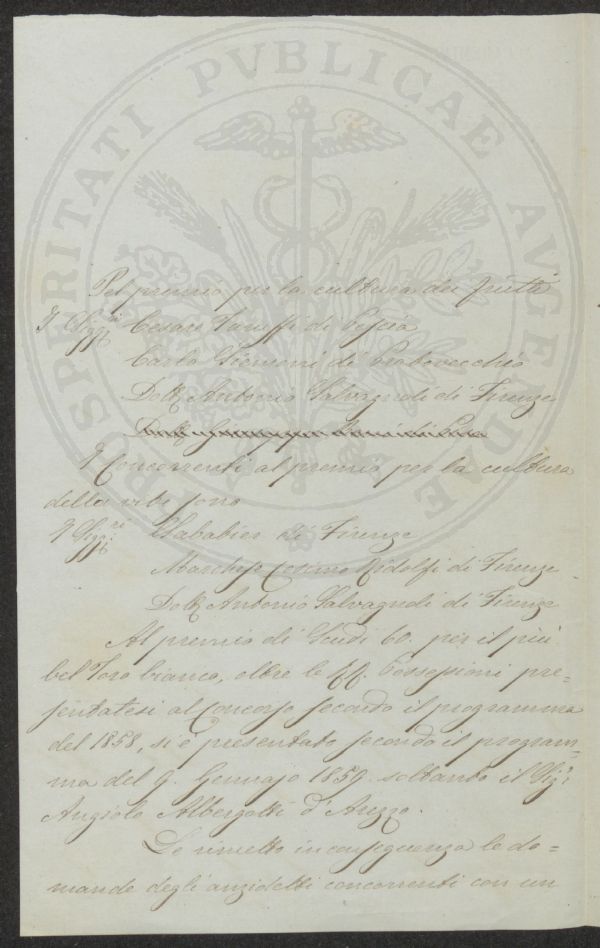 PROSPERITATI PVBLICAE AVGENDAE
Pel premio per la cultura dei frutti
I Sigg.ri Cesare Turuffi di Pescia
Carlo Siemoni di Pratovecchio
Dott Antonio Salvagnoli di Firenze
I Concorrenti al premio per la cultura
della vite sono
I Sigg.ri Sababier di Firenze
Marchese Cosimo Ridolfi di Firenze
Dott Antonio Salvagnoli di Firenze
Al premio di Scudi 60. per il più
bel Toro bianco, oltre le RR. Possessioni pre=
sentatesi al Concorso secondo il programma
del 1858, si è presentato secondo il program=
ma del 9. Gennajo 1859. soltanto il Sig:r
Angiolo Albergotti d'Arezzo.
Le rimetto in conseguenza le do=
mande degli anzidetti concorrenti con un